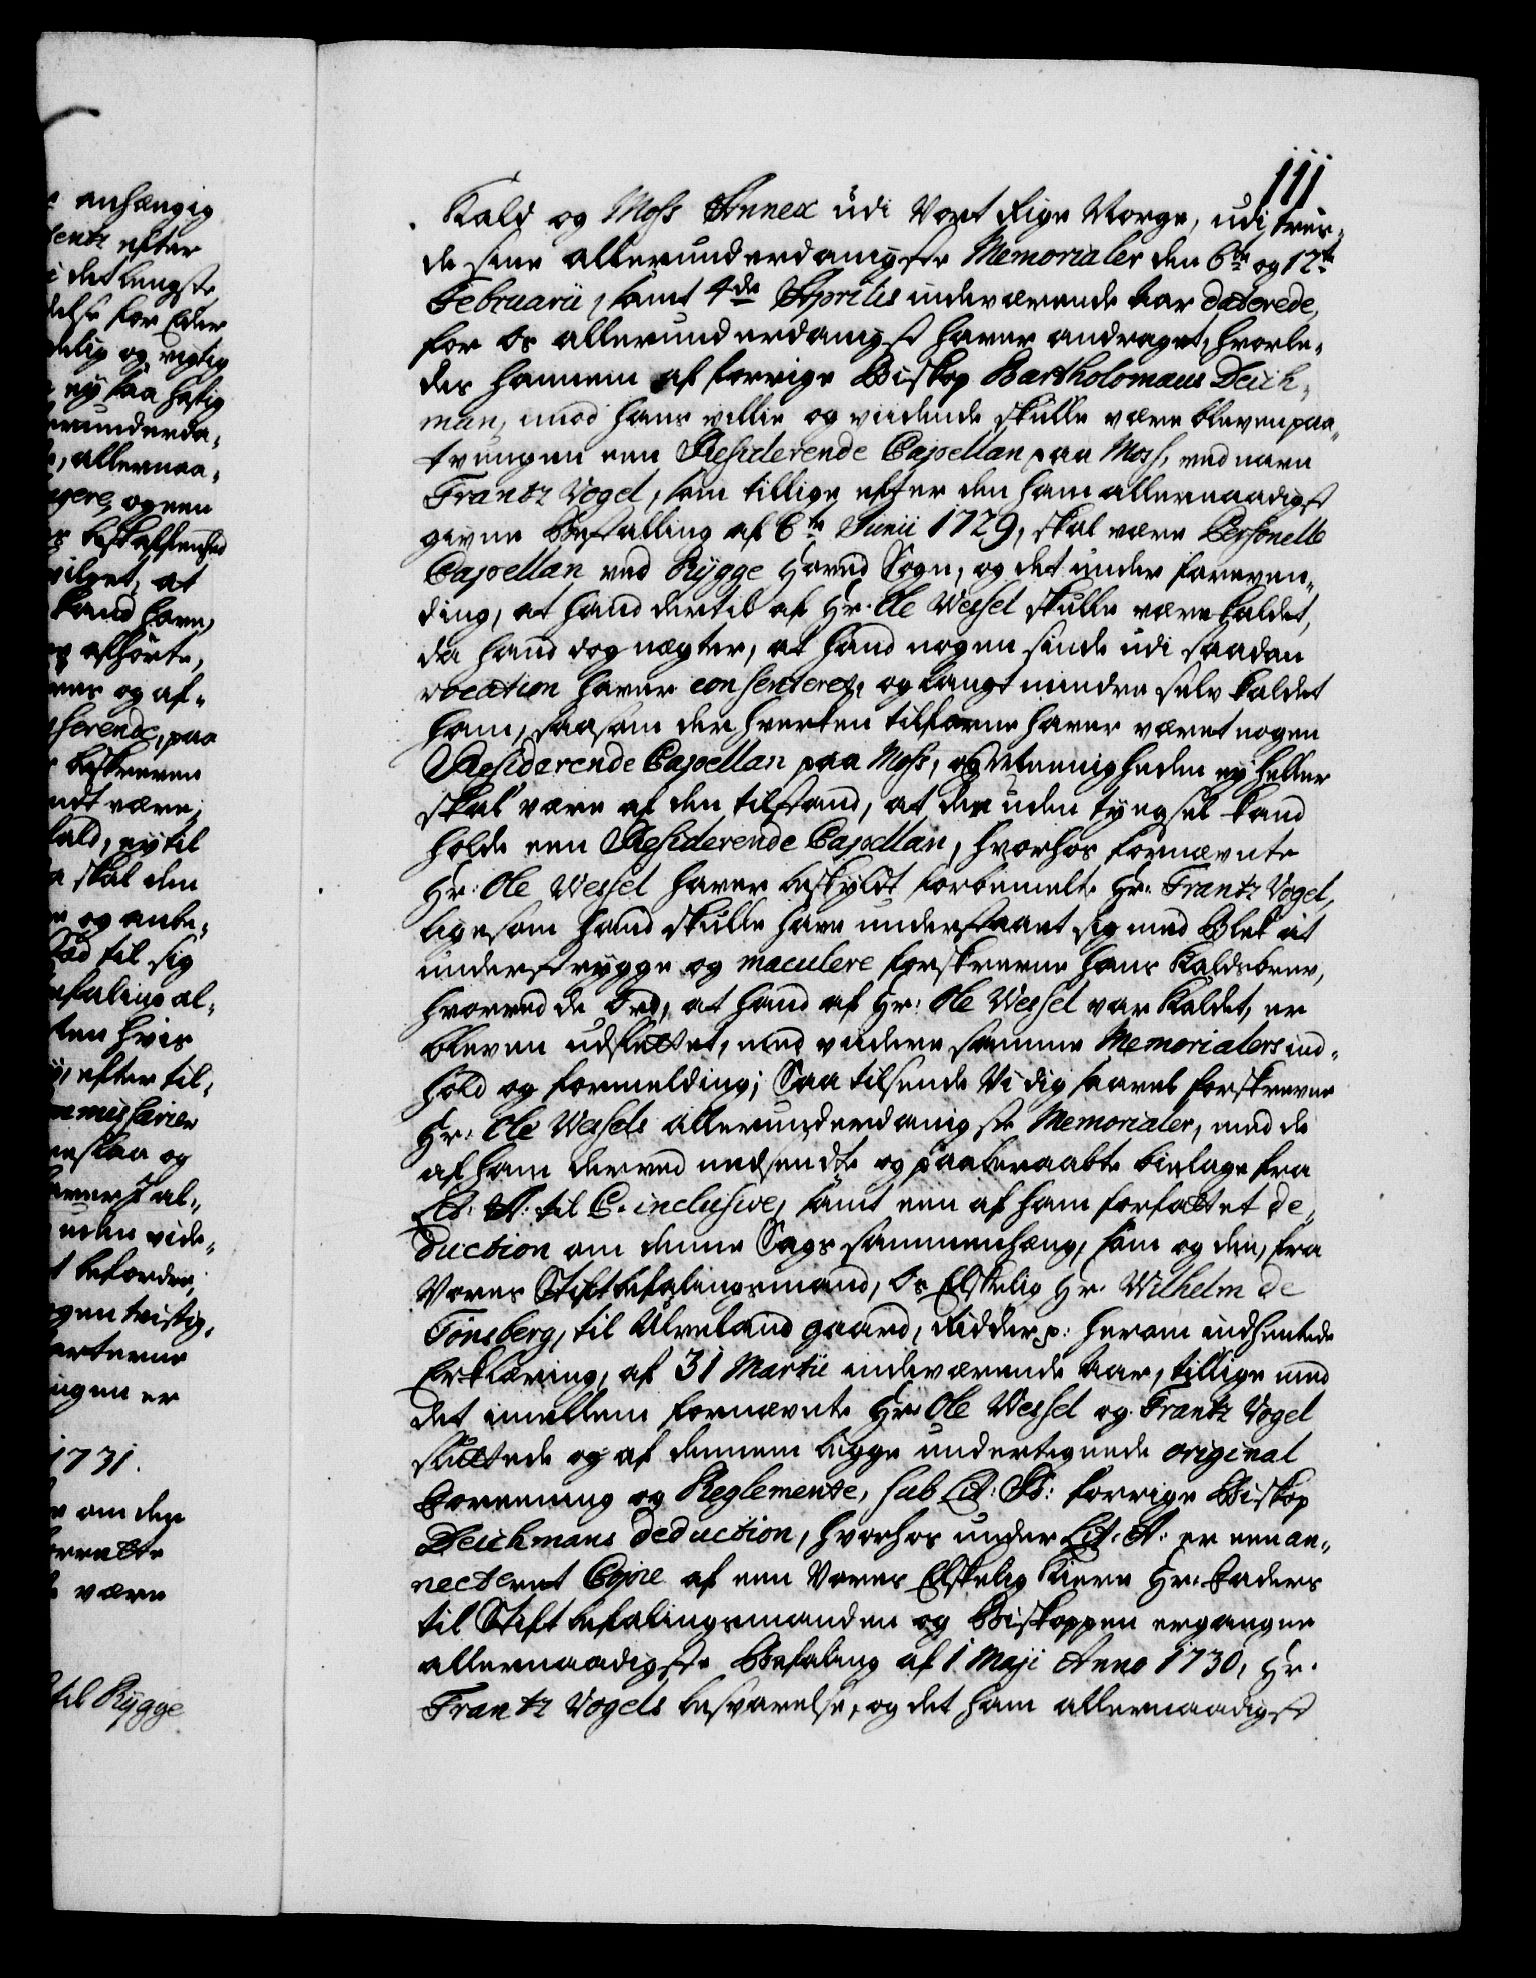 111
anhængig
efter
det lengste
for Eder
og rigtig
ey saa hastig
allernaa-
og een
beskaffenhed
at
kand have,
afhørte,
og af-
paa
beskreven
være,
ey til
skal den
og anbe-
til sig
al-
hvis
efter til-
og
al-
uden vide-
befordre,
tvistig-
er
1731.
om den
være
til Rygge
Kald og Moss Annex udi Vort Rige Norge, udi tren-
de sine allerunderdanigste Memorialer den 6te og 12te
Februarii, samt 4de Aprilis indeværende Aar daterede,
for os allerunderdanigst haver andraget, hvorle-
des hannem af forrige Biskop Bartholomæus Deich-
man, imod hans villie og vidende skulle være bleven paa-
tvungen een Residerende Capellan paa Moss, ved navn
Frantz Vogel, som tillige efter den ham allernaadigst
givne Bestalling af 6te Junii 1729, skal være Personelle
Capellan ved Rygge Hoved Sogn, og det under foreven-
ding, at hand dertil af Hr. Ole Wessel skulle være kaldet,
da hand dog nægter, at hand nogen sinde udi saadan
vocation haver consenteret, og langt mindre selv kaldet
ham, saasom der hverken tilforne haver været nogen
Residerende Capellan paa Moss, og Meenigheden ey heller
skal være af den tilstand, at den uden tyngsel kand
holde een Residerende Capellan, hvorhos fornævnte
Hr: Ole Wessel haver beskyldt forbemelte Hr: Frantz Vogel,
ligesom hand skulle have understaaet sig med Blek at
understrygge og maculere forskrevne hans Kaldsbrev,
hvorved de Ord, at hand af Hr: Ole Wessel var kaldet, er
bleven udslettet, med videre samme Memorialers ind-
hold og formelding; Saa tilsende Vi dig saavel forskrevne
Hr: Ole Wessels allerunderdanigste Memorialer, med de
af ham derved nedsendte og paaberaabte bielage fra
Lit: A: til C. inclusive, samt een af ham forfattet de-
duction om denne Sags sammenhæng, som og den, fra
Vores Stiftbefalingsmand, Os Elskelig Hr. Wilhelm de
Tønsberg, til Ulveland gaard, Ridder p: herom indhentede
Erklæring, af 31 Martii indeværende Aar, tillige med
det imellem fornævnte Hr: Ole Wessel og Frantz Vogel
sluttede og af dennem begge undertegnede original
Foreening og Reglemente, sub Lit: B: forrige Biskop
Deichmans deduction, hvorhos under Lit: A: er een an-
necteret Copie af een Vores Elskelig Kiere Hr: Faders
til Stiftbefalingsmanden og Biskoppen ergangne
allernaadigste Befaling af 1 Maji Anno 1730, Hr.
Frantz Vogels besvarelse, og det ham allernaadigst